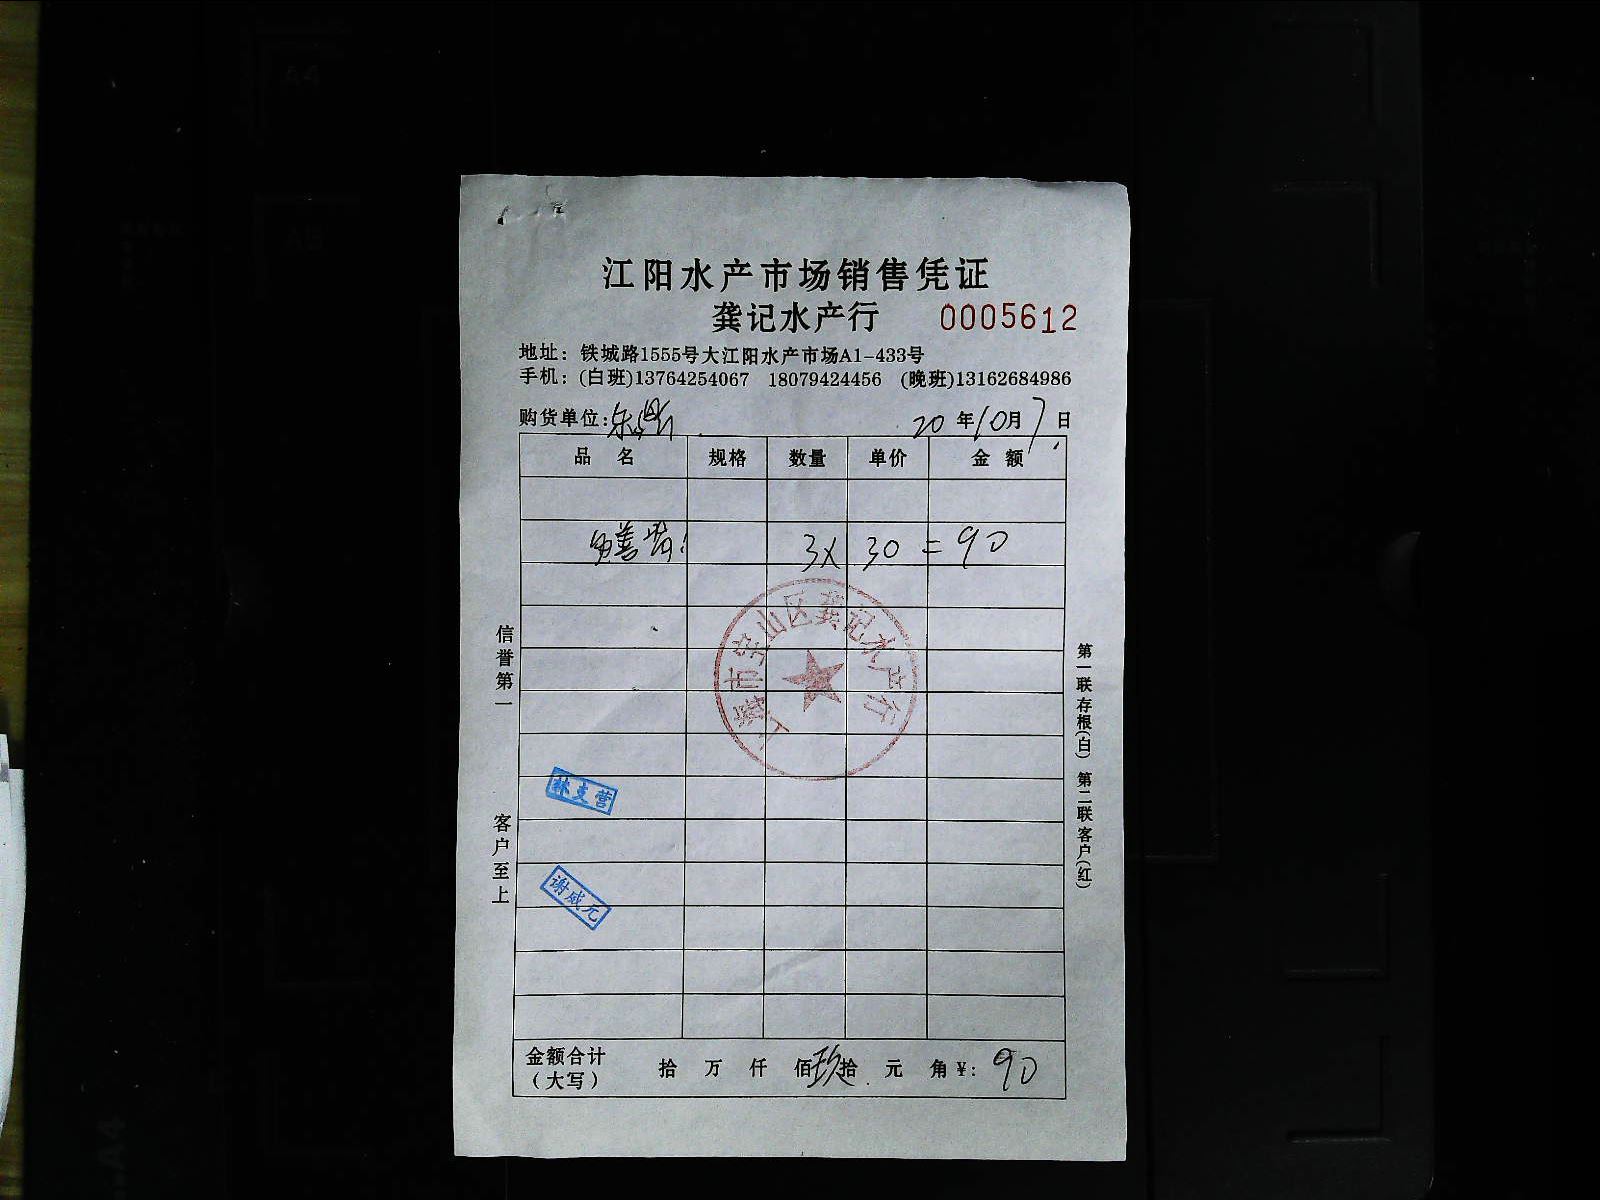 江阳水产市场销售凭证
龚记水产行 0005612
地址：铁城路1555号大江阳水产市场A1-433号
手机：(白班)13764254067 18079424456 (晚班)13162684986
购货单位: 20年10月7日
品名 规格 数量 单价 金额
3X 30 = 90
上海市宝山区龚记水产行
信誉第一
客户至上
第一联存根(白) 第二联客户(红)
林支营
谢咸元
金额合计 拾 万 仟 佰玖拾 元 角¥: 90
(大写)
A4
A5
A4